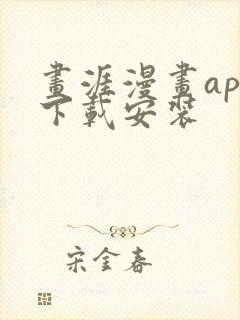 畫涯漫畫ap
下載安裝
宋金春